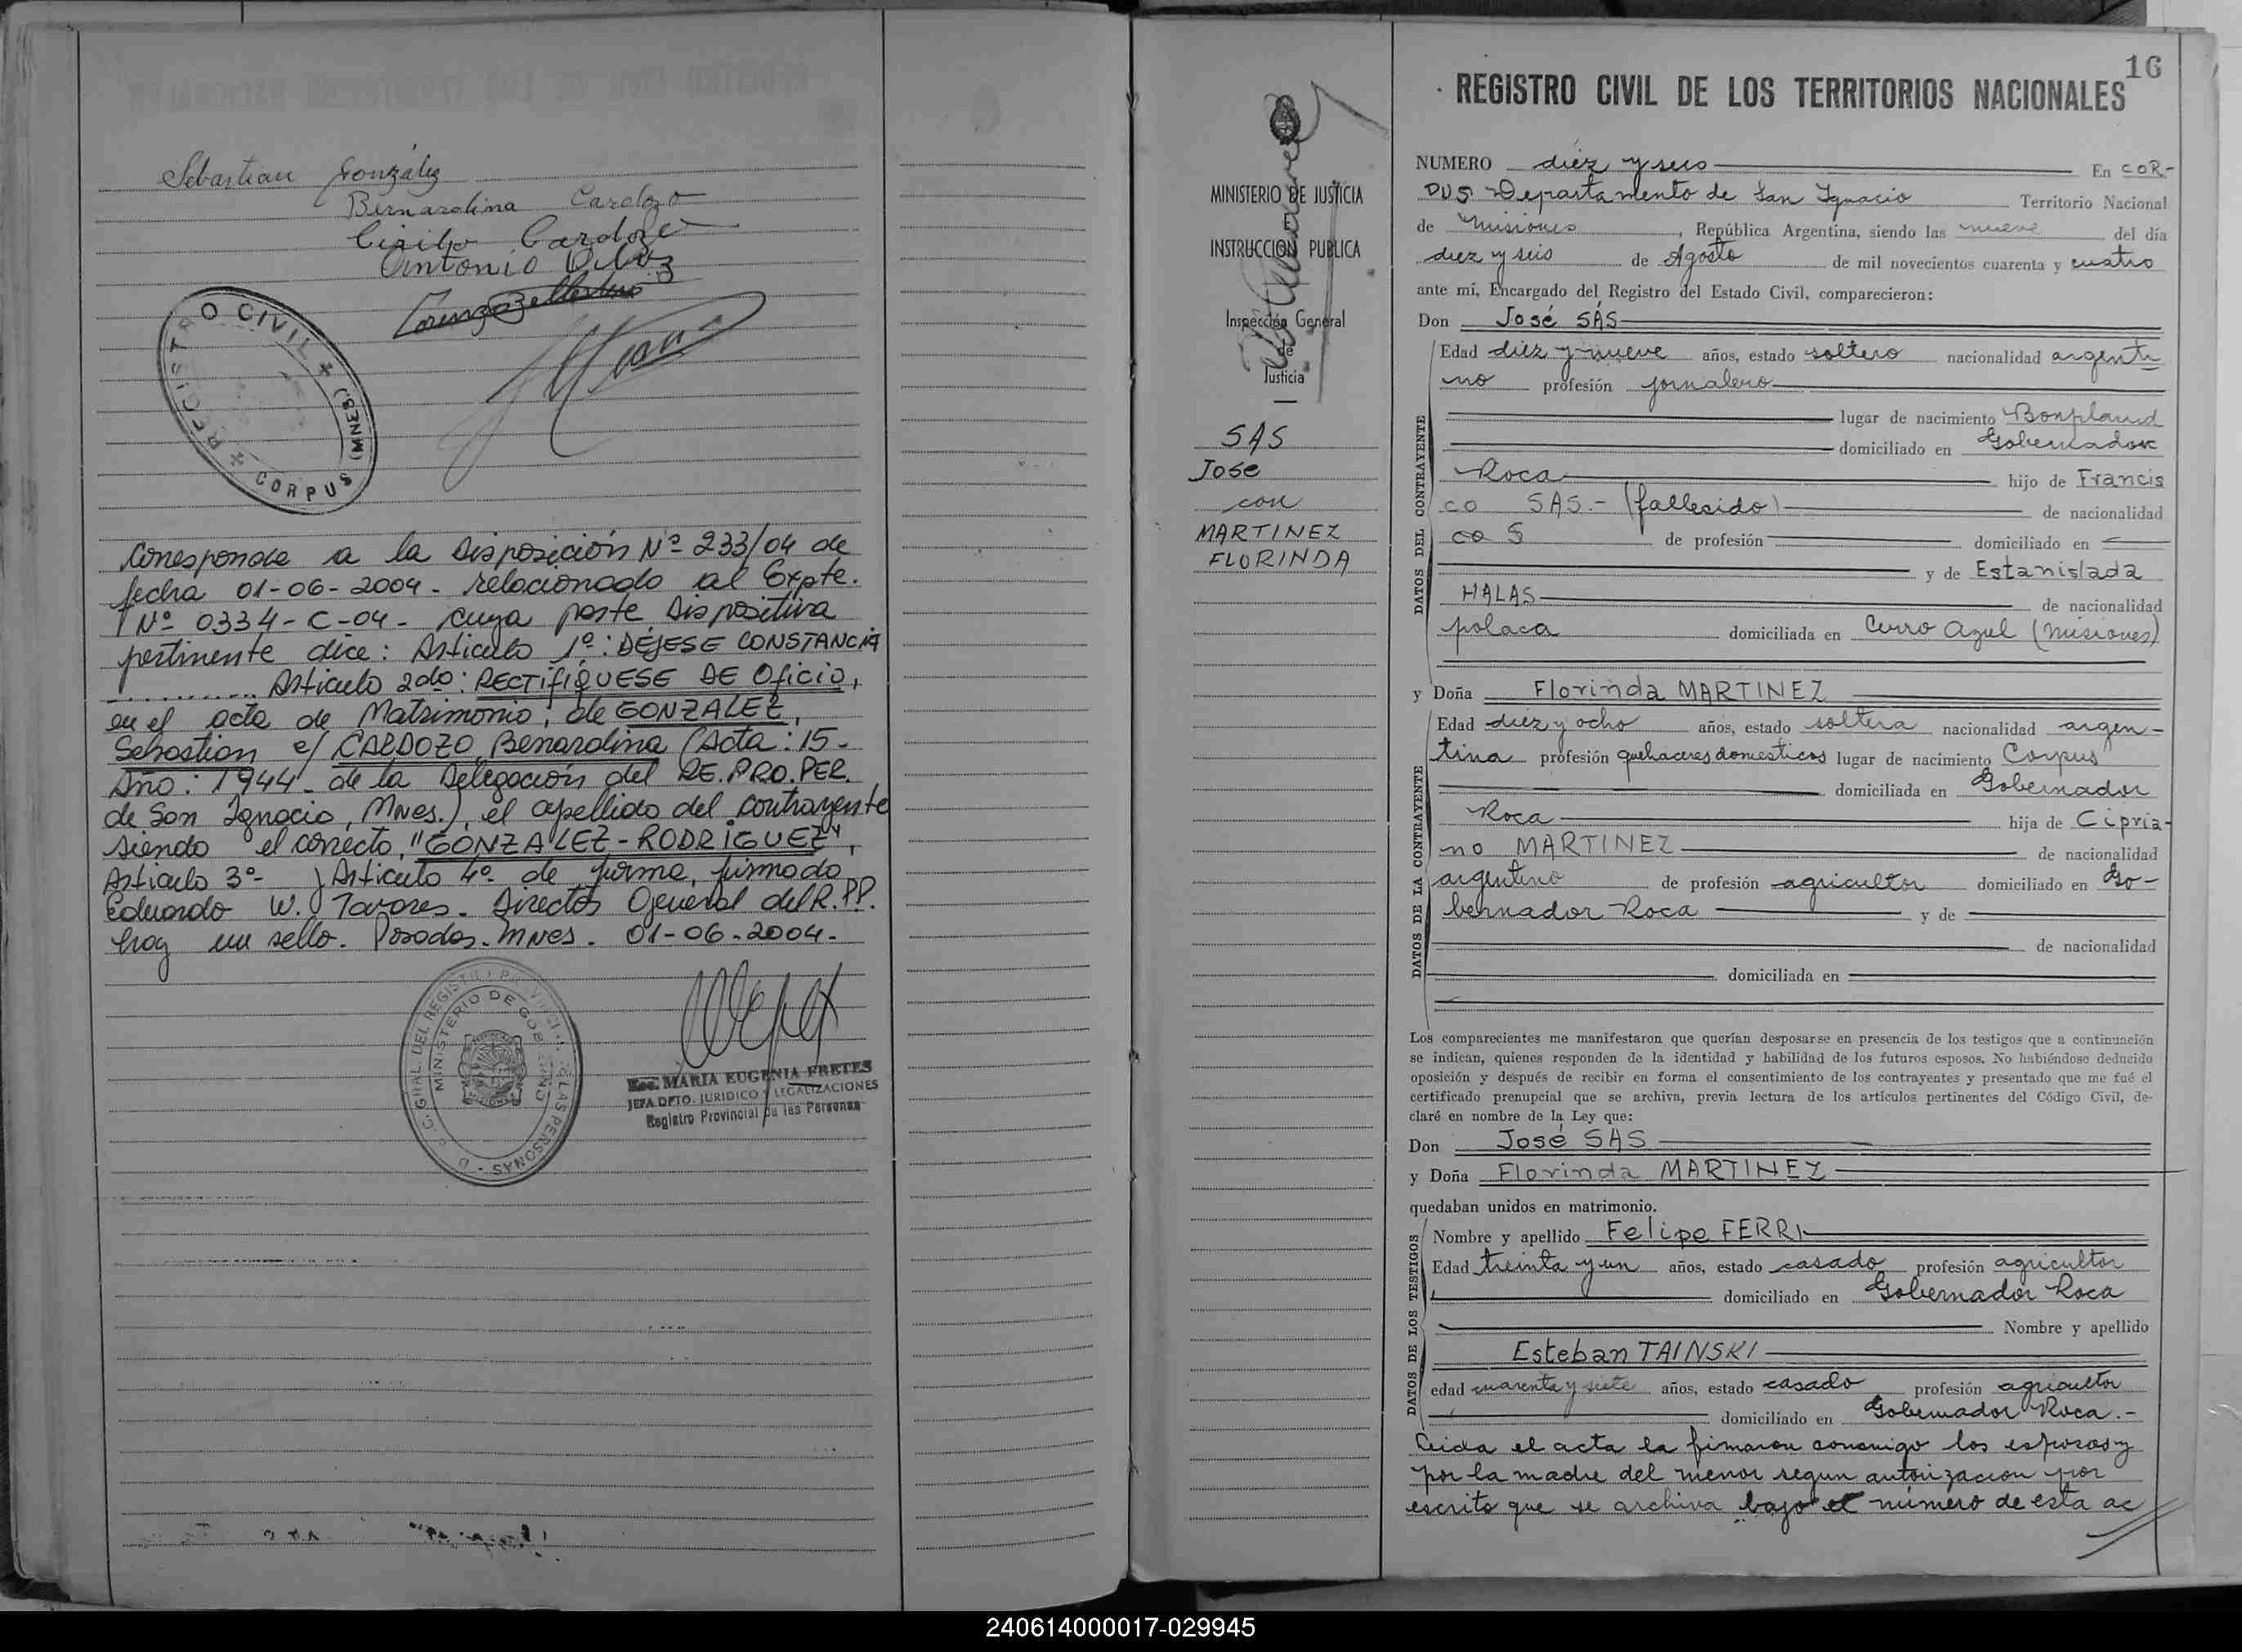 Sebastian González
Bernardina Cardozo
Cirilo Cardozo
Antonio
REGISTRO CIVIL
CORPUS (MNES.)
Corresponde a la Disposición Nº 233/04 de
fecha 01-06-2004 - relacionado al Expte.
Nº 0334-C-04 - cuya parte Dispositiva
pertinente dice: Articulo 1º: DÉJESE CONSTANCIA
............ Articulo 2do: RECTIFIQUESE DE Oficio,
en el acta de Matrimonio, de GONZALEZ,
Sebastian c/ CARDOZO, Benardina (Acta: 15-
Año: 1944 - de la Delegación del RE.PRO.PER.
de San Ignacio, Mnes.), el apellido del contrayente
siendo el correcto, "GONZALEZ-RODRIGUEZ",
Articulo 3º- y Articulo 4º de forma, firmado
Eduardo W. Tavares. Director General del R.P.P.
hay un sello. Posadas. Mnes. 01-06-2004.
MINISTERIO DE GOBIERNO
Esc. MARIA EUGENIA FRETES
JEFA DPTO. JURIDICO Y LEGALIZACIONES
Registro Provincial de las Personas
MINISTERIO DE JUSTICIA
E
INSTRUCCION PUBLICA
Inspección General
de
Justicia
SAS
Jose
con
MARTINEZ
FLORINDA
16
REGISTRO CIVIL DE LOS TERRITORIOS NACIONALES
NUMERO diez y seis En COR-
PUS Departamento de San Ignacio Territorio Nacional
de Misiones, República Argentina, siendo las nueve del día
diez y seis de Agosto de mil novecientos cuarenta y cuatro
ante mí, Encargado del Registro del Estado Civil, comparecieron:
Don José SAS
DATOS DEL CONTRAYENTE
Edad diez y nueve años, estado soltero nacionalidad argenti
no profesión jornalero
lugar de nacimiento Bonpland
domiciliado en Gobernador
Roca hijo de Francis
co SAS.- (fallecido) de nacionalidad
de profesión domiciliado en
y de Estanislada
HALAS de nacionalidad
polaca domiciliada en Cerro Azul (Misiones)
y Doña Florinda MARTINEZ
DATOS DE LA CONTRAYENTE
Edad diez y ocho años, estado soltera nacionalidad argen-
tina profesión quehaceres domesticos lugar de nacimiento Corpus
domiciliada en Gobernador
Roca hija de Cipria-
no MARTINEZ de nacionalidad
argentino de profesión agricultor domiciliado en Go-
bernador Roca y de
de nacionalidad
domiciliada en
Los comparecientes me manifestaron que querían desposarse en presencia de los testigos que a continuación
se indican, quienes responden de la identidad y habilidad de los futuros esposos. No habiéndose deducido
oposición y después de recibir en forma el consentimiento de los contrayentes y presentado que me fué el
certificado prenupcial que se archiva, previa lectura de los artículos pertinentes del Código Civil, de-
claré en nombre de la Ley que:
Don José SAS
y Doña Florinda MARTINEZ
quedaban unidos en matrimonio.
DATOS DE LOS TESTIGOS
Nombre y apellido Felipe FERRI
Edad treinta y un años, estado casado profesión agricultor
domiciliado en Gobernador Roca
Nombre y apellido
Esteban TAINSKI
edad cuarenta y siete años, estado casado profesión agricultor
domiciliado en Gobernador Roca.-
Leida el acta la firmaron conmigo los esposos y
por la madre del menor segun autorizacion por
escrito que se archiva bajo el número de esta ac
240614000017-029945